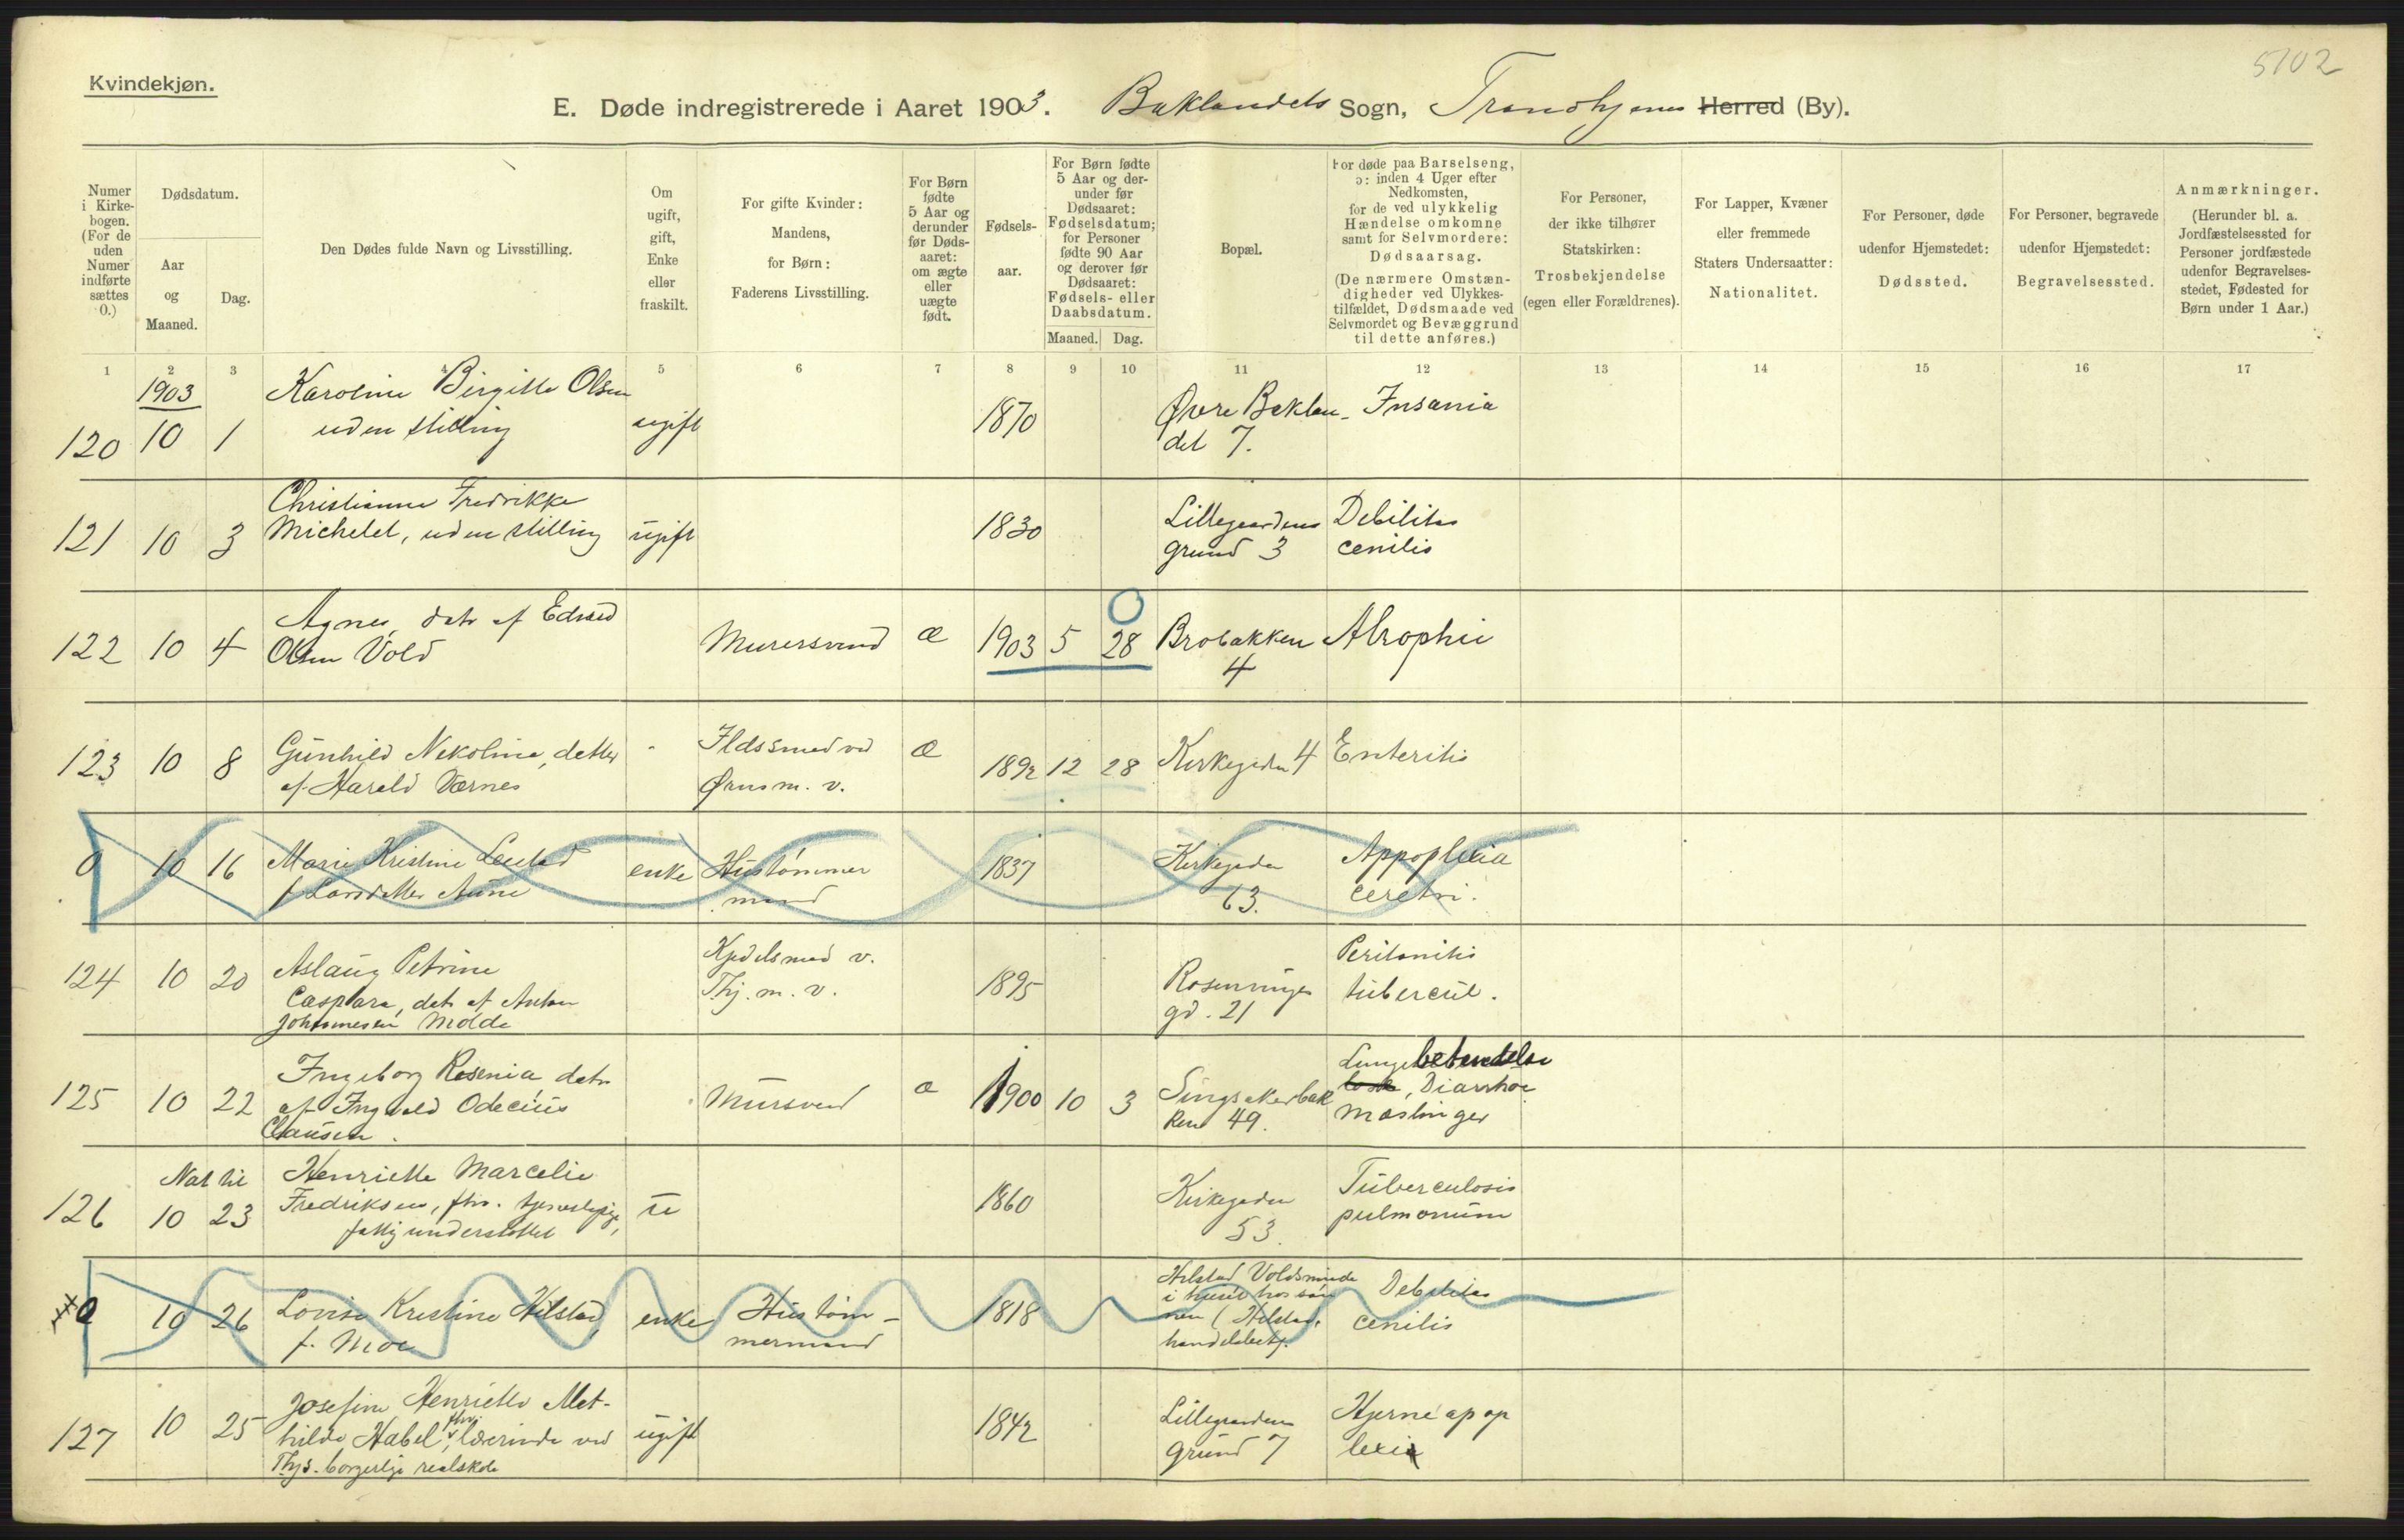 5702
Kvindekjøn.
E. Døde indregistrerede i Aaret 1903. Baklandets Sogn, Trondhjems Herred (By).
Numer i Kirkebogen. (For de uden Numer indførte sættes 0.)
Dødsdatum.
Aar og Maaned.
Dag.
Den Dødes fulde Navn og Livsstilling.
Om ugift, gift, Enke eller fraskilt.
For gifte Kvinder: Mandens, for Børn: Faderens Livsstilling.
For Børn fødte 5 Aar og derunder før Dødsaaret: om ægte eller uægte født.
Fødselsaar.
For Børn fødte 5 Aar og derunder før Dødsaaret: Fødselsdatum; for Personer fødte 90 Aar og derover før Dødsaaret: Fødsels- eller Daabsdatum.
Maaned. Dag.
Bopæl.
For døde paa Barselseng, ɔ: inden 4 Uger efter Nedkomsten, for de ved ulykkelig Hændelse omkomne samt for Selvmordere: Dødsaarsag.
(De nærmere Omstændigheder ved Ulykkestilfældet, Dødsmaade ved Selvmordet og Bevæggrund til dette anføres.)
For Personer, der ikke tilhører Statskirken: Trosbekjendelse (egen eller Forældrenes).
For Lapper, Kvæner eller fremmede Staters Undersaatter: Nationalitet.
For Personer, døde udenfor Hjemstedet: Dødssted.
For Personer, begravede udenfor Hjemstedet: Begravelsessted.
Anmærkninger. (Herunder bl. a. Jordfæstelsessted for Personer jordfæstede udenfor Begravelsesstedet, Fødested for Børn under 1 Aar.)
1 2 3 4 5 6 7 8 9 10 11 12 13 14 15 16 17
1903
120 10 1 Karoline Birgitte Olsen ugift 1870 Øvre Baklan- Insania
uden stilling det 7.
121 10 3 Christianne Fredrikke ugift 1830 Lillegaardens Debilitas
Michelet, uden stilling grund 3 cenilis
122 10 4 Agnes, datr af Edvard Murersvend æ 1903 5 28 Brobakken Atrophie
Olsen Vold 4
123 10 8 Gunhild Nikoline, datter Ildssmed ved æ 1892 12 28 Kirkegaden 4 Enteritis
af Harald Værnes Ørens m. v.
0 10 16 Marie Kristine enke Hustømmer 1837 Kirkegaden Appoplexia
f. Larsdatter Aune mand 63. cerebri.
124 10 20 Aslaug Petrine Kjedelsmed v. 1895 Rosenborg Peritonitis
Caspara, datr af Anton Thj. m. v. gd. 21 tubercul.
Johannesen Molde
125 10 22 Ingeborg Rosenia datr Mursvend æ 1900 10 3 Singsakerbak Lungebetendelse
af Ingvald Odecius ken 49. Diarrhoe
Clausen. Mæslinger
Nat til
126 10 23 Henriette Marcelie u 1860 Kirkegaden Tuberculosis
Fredriksen, fhv. tjenestepige, 53. pulmonum
fattigunderstøttet
0 10 26 Lovise Kristine Hilstad, enke Hustøm- 1818 Hilstad Voldsminde Debilitas
f. Moe mermand i huset hos søn cenilis
nen (Hilstad,
handelsbetj.
127 10 25 Josefine Henriette Mat- ugift 1842 Lillegaardens Hjerneapop
hilde Habel, fhv. lærerinde ved grund 7 lexia
Thjs. borgerlige realskole